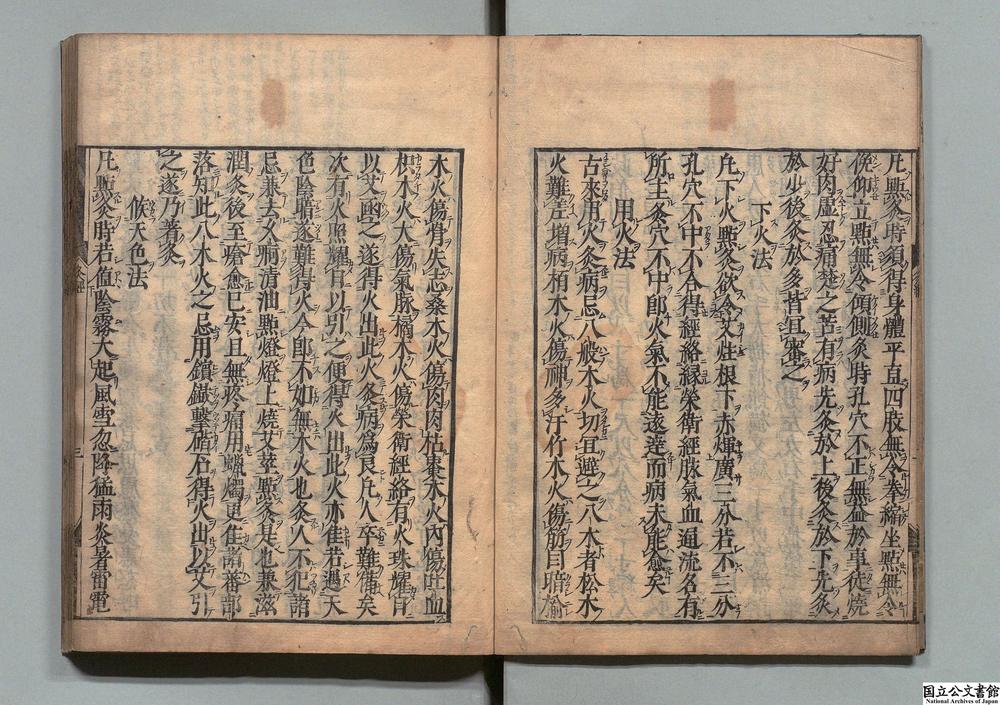 凡點灸時須得身體平直四肢無令拳縮坐點無令
俛仰立點無令傾側灸時孔穴不正無益於事徒燒
好肉虛忍痛楚之苦有病先灸於上後灸於下先灸
於少後灸於多皆宜審之
下火法
凡下火點灸欲令艾炷根下赤煇廣三分若不三分
孔穴不中不合得經絡緣榮衛經脉氣血通流各有
所主灸穴不中即火氣不能遠達而病未能愈矣
用火法
古來用火灸病忌八般木火切宜避之八木者松木
火難差增病栢木火傷神多汗竹木火傷筋目暗榆
木火傷骨失志桑木火傷肉肉枯棗木火內傷吐血
枳木火大傷氣脉橘木火傷榮衛經絡有火珠耀日
以艾函之遂得火出此火灸病爲良凡人卒難備矣
次有火照耀日以引之便得火出此火亦佳若遇天
色陰暗遂難得火今即不如無木火也灸人不犯諸
忌兼去久痾清油點燈燈上燒艾莖點灸是也兼滋
潤灸後至瘡愈已安且無疼痛用蠟燭更佳諸蕃部
落知此八木火之忌用鑌鐵擊碏石得火出以艾引
之遂乃着灸
候天色法
凡點灸時若值陰霧大起風雪忽降猛雨炎暑雷電
灸經
三
国立公文書館
National Archives of Japan